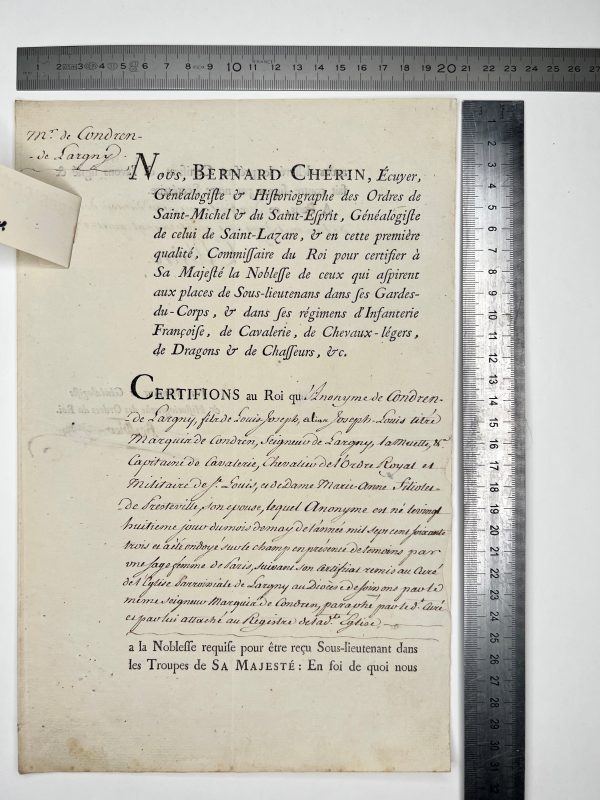 Mr. de Condren-
-de Largny.
Nous, BERNARD CHÉRIN, Écuyer,
Généalogiste & Historiographe des Ordres de
Saint-Michel & du Saint-Esprit, Généalogiste
de celui de Saint-Lazare, & en cette première
qualité, Commissaire du Roi pour certifier à
Sa Majesté la Noblesse de ceux qui aspirent
aux places de Sous-lieutenans dans ses Gardes-
du-Corps, & dans ses régimens d'Infanterie
Françoise, de Cavalerie, de Chevaux-légers,
de Dragons & de Chasseurs, &c.
CERTIFIONS au Roi qu'Anonyme de Condren-
-de Largny, fils de Louis-Joseph, alias Joseph-Louis titré
Marquis de Condren, Seigneur de Largny, la Muette, &a
Capitaine de Cavalerie, Chevalier de l'Ordre Royal et
Militaire de St. Louis, et de Dame Marie-Anne
de son epouse, lequel Anonyme est né le vingt
huitieme jour du mois de may de l'année mil sept cent soixante
trois et a été ondoyé sur le champ en présence de temoins par
une sage femme de Paris, suivant son certificat remis au Curé
de l'Eglise Parroissiale de Largny au Diocese de Soissons par le
même Seigneur Marquis de Condren, paraphé par le d. Curé
et par lui attaché au Registre de lad. Eglise.
a la Noblesse requise pour être reçu Sous-lieutenant dans
les Troupes de SA MAJESTÉ: En foi de quoi nous